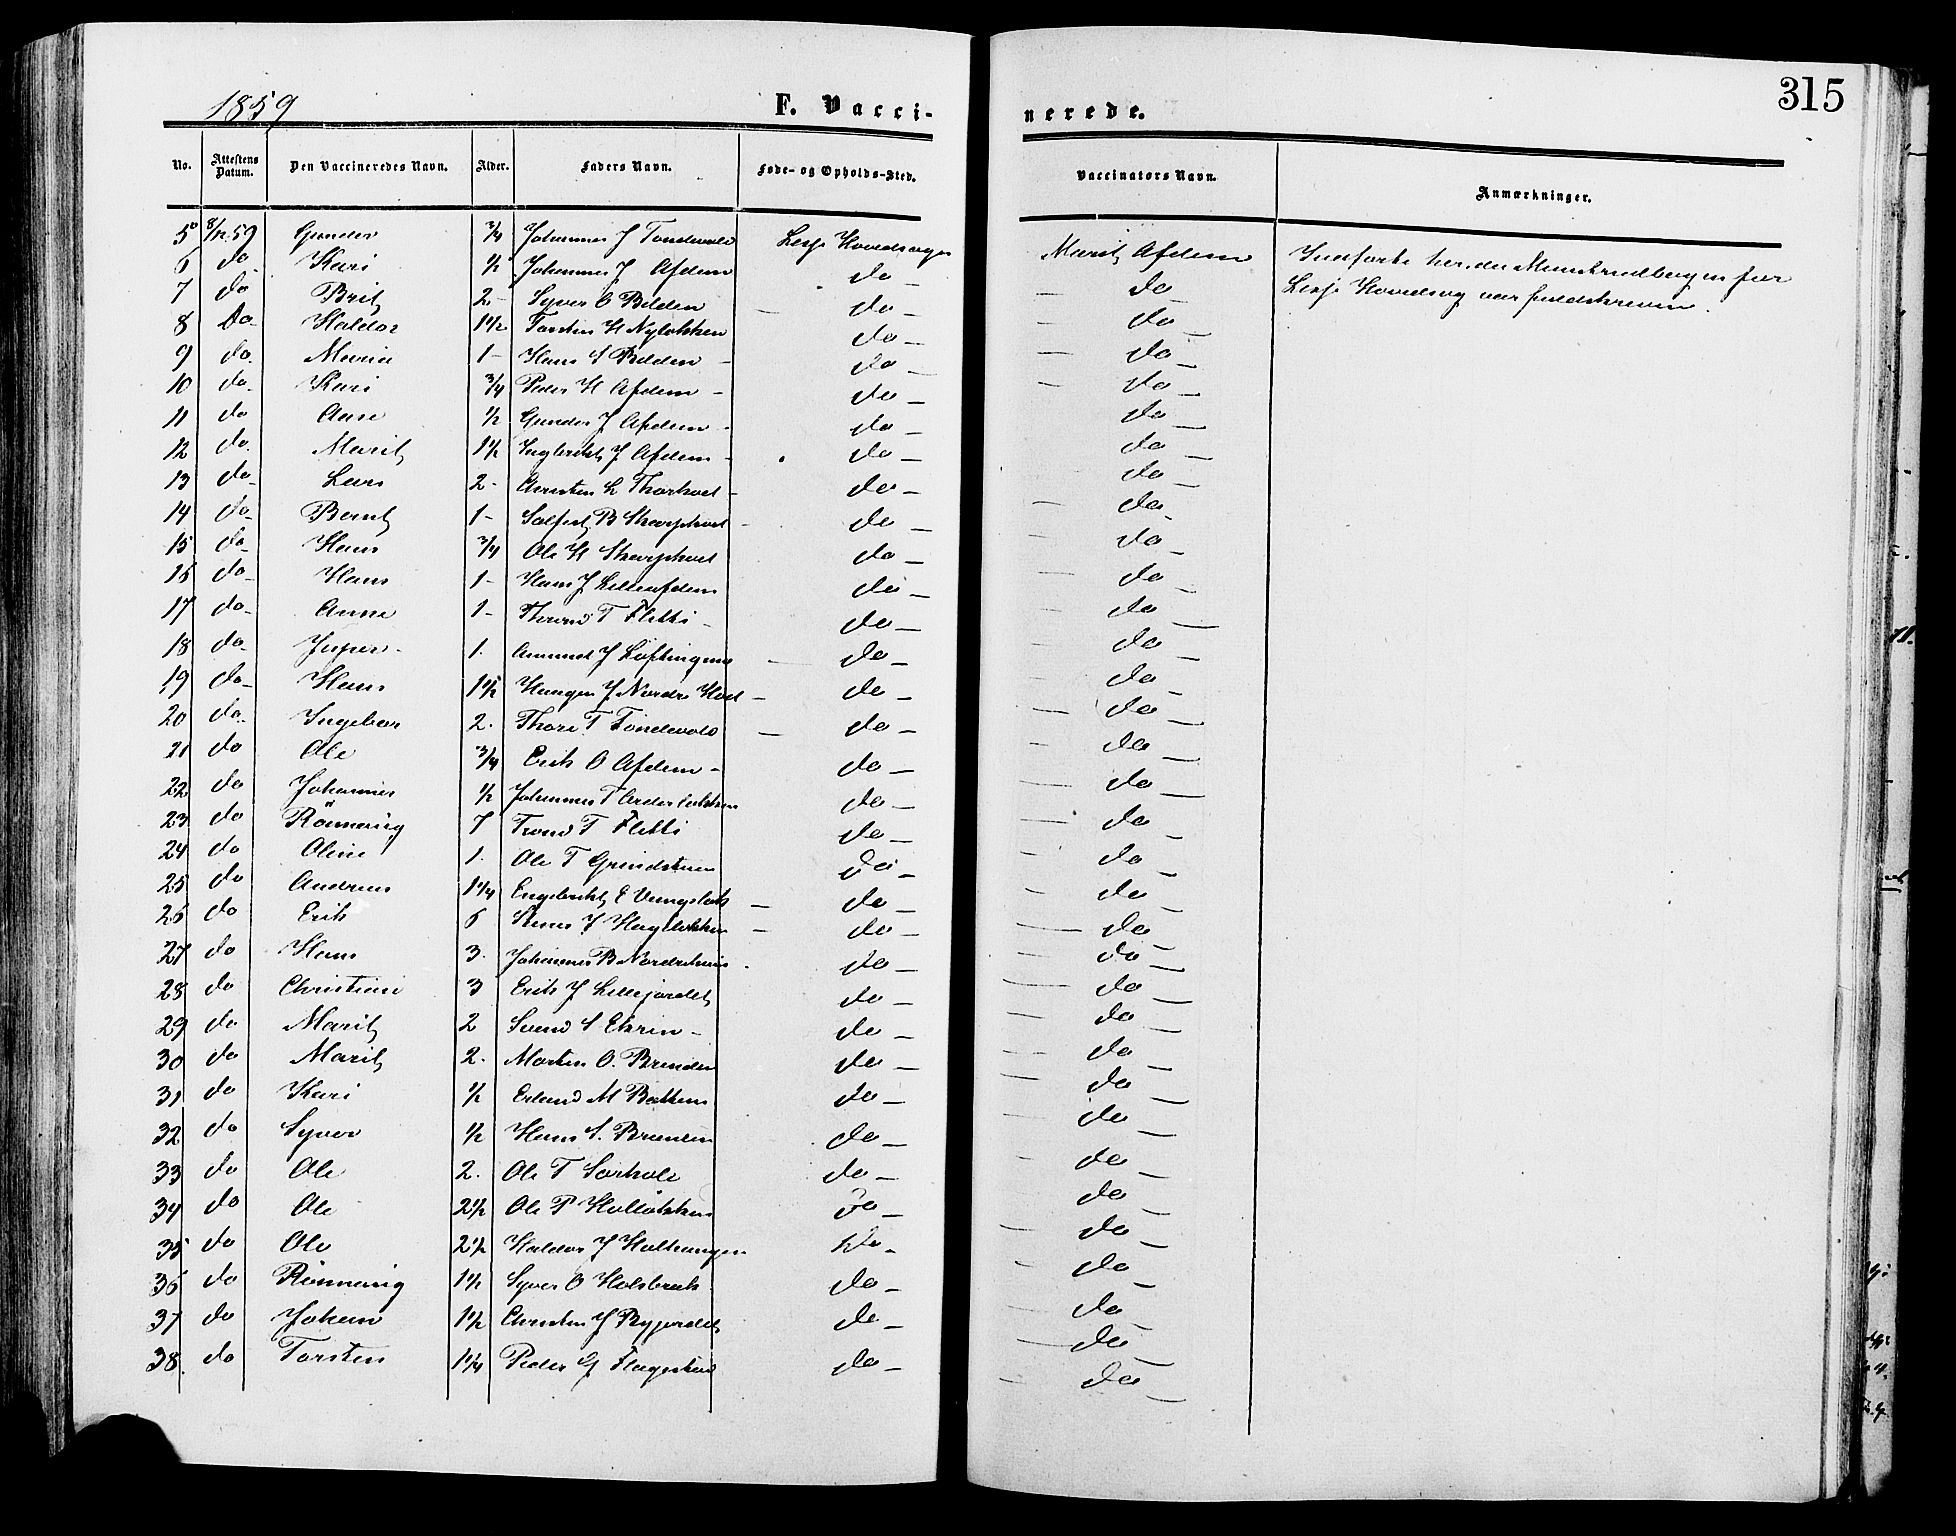 1859
F. Vacci-
nerede.
315
No. Attestens Datum. Den Vaccineredes Navn. Alder. Faders Navn. Føde- og Opholds-Sted. Vaccinators Navn. Anmærkninger.
5 8/12 59 Gunder 3/4 Johannes J Tondevold Lesje Hovedsogn Marit Afdem Indførte her, da Ministerialbogen for
6 do Kari 1/2 Johannes J Afdem do do Lesje Hovedsogn var fuldskreven.
7 do Brit 2 Syver O Bolden do do
8 do Haldor 1 1/2 Torsten H Nyløkken do do
9 do Maria 1 Hans S Bolden do do
10 do Kari 3/4 Peder H Afdem do do
11 do Anne 1/2 Gunder J Afdem do do
12 do Marit 1 1/2 Ingbrikt J Afdem do do
13 do Lars 2 Christen L do do
14 do Bernt 1 B do do
15 do Hans 3/4 Ole H do do
16 do Hans 1 Hans J Lilleafdem do do
17 do Anne 1 Thrond T Flitti do do
18 do 1 Amund J do do
19 do Hans 1 1/2 J Nordre do do
20 do Ingebor 2 Thore T Tondevold do do
21 do Ole 3/4 Erik O Afdem do do
22 do Johannes 1/2 Johannes T do do
23 do Rønnaug 7 Trond T Flitti do do
24 do Oline 1 Ole T Grindstuen do do
25 do Andreas 1 1/4 Engebrikt E do do
26 do Erik 6 J do do
27 do Hans 3 Johannes B do do
28 do Christine 3 Erik J Lillejordet do do
29 do Marit 2 Svend S Ekren do do
30 do Marit 2 Morten O. Brenden do do
31 do Kari 1/2 Erland M Bakken do do
32 do Syver 1/2 Hans S. do do
33 do Ole 2 Ole T do do
34 do Ole 2 1/2 Ole P do do
35 do Ole 2 1/2 Haldor J do do
36 do Rønnaug 1 1/2 Syver O do do
37 do Johan 1 1/2 Christen J Byjordet do do
38. do Torsten 1 1/4 Peder G do do